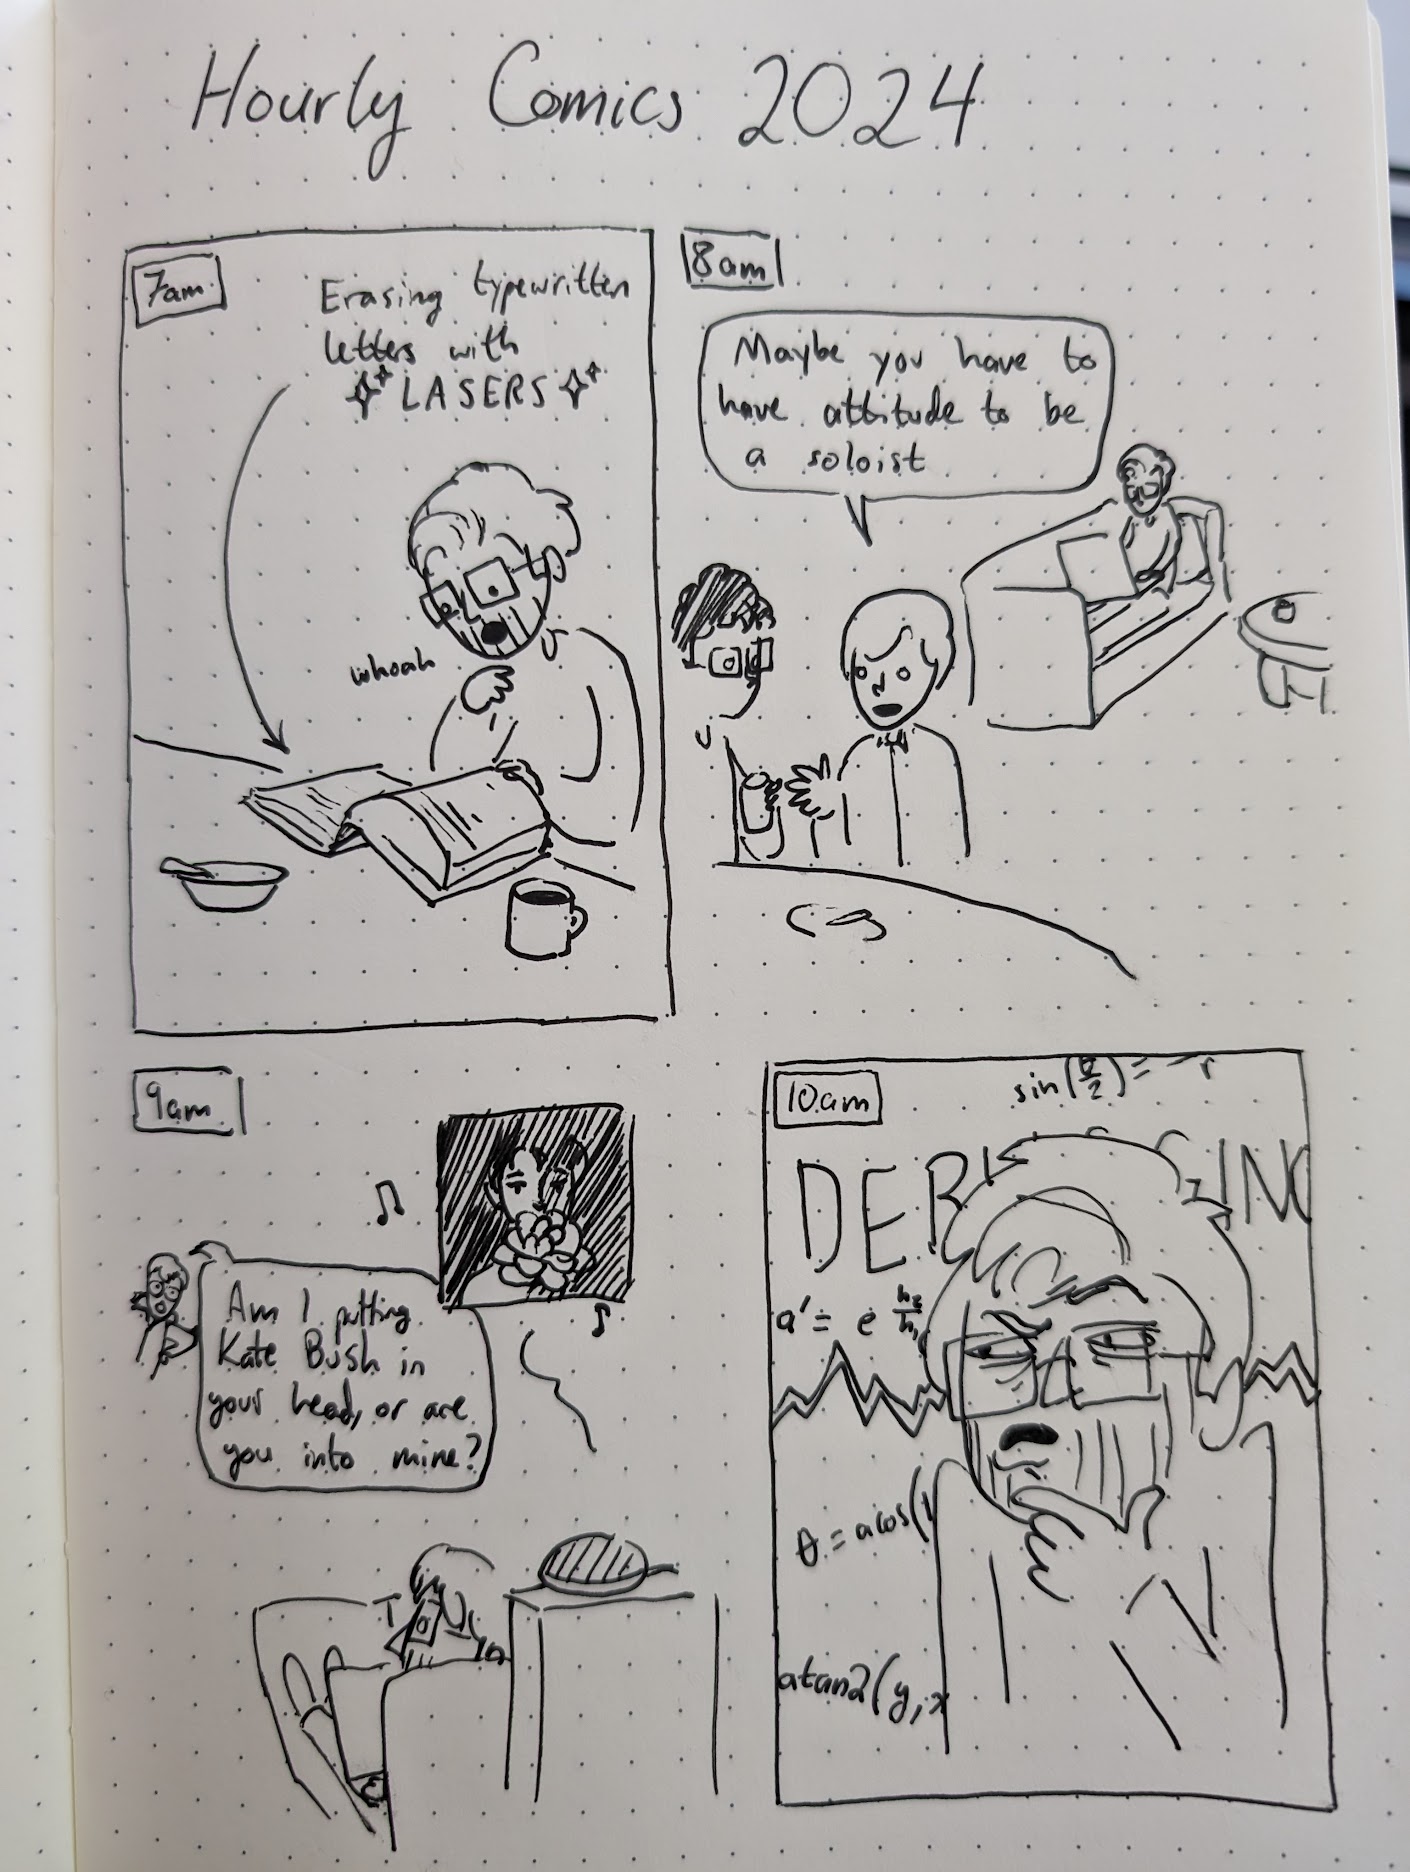 Hourly Comics 2024
7am
Erasing typewritten
letters with
LASERS
whoah
8am
Maybe you have to
have attitude to be
a soloist
9am
Am I putting
Kate Bush in
your head, or are
you into mine?
10am
sin(θ/2) = r
DEB GING
a' = e
θ = acos(1
atan2(y,x